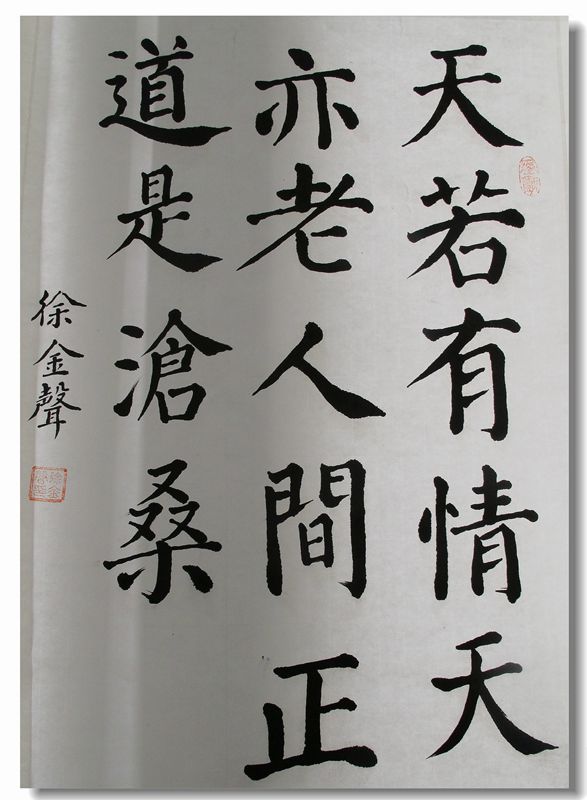 天若有情天
亦老人間正
道是滄桑
徐金聲